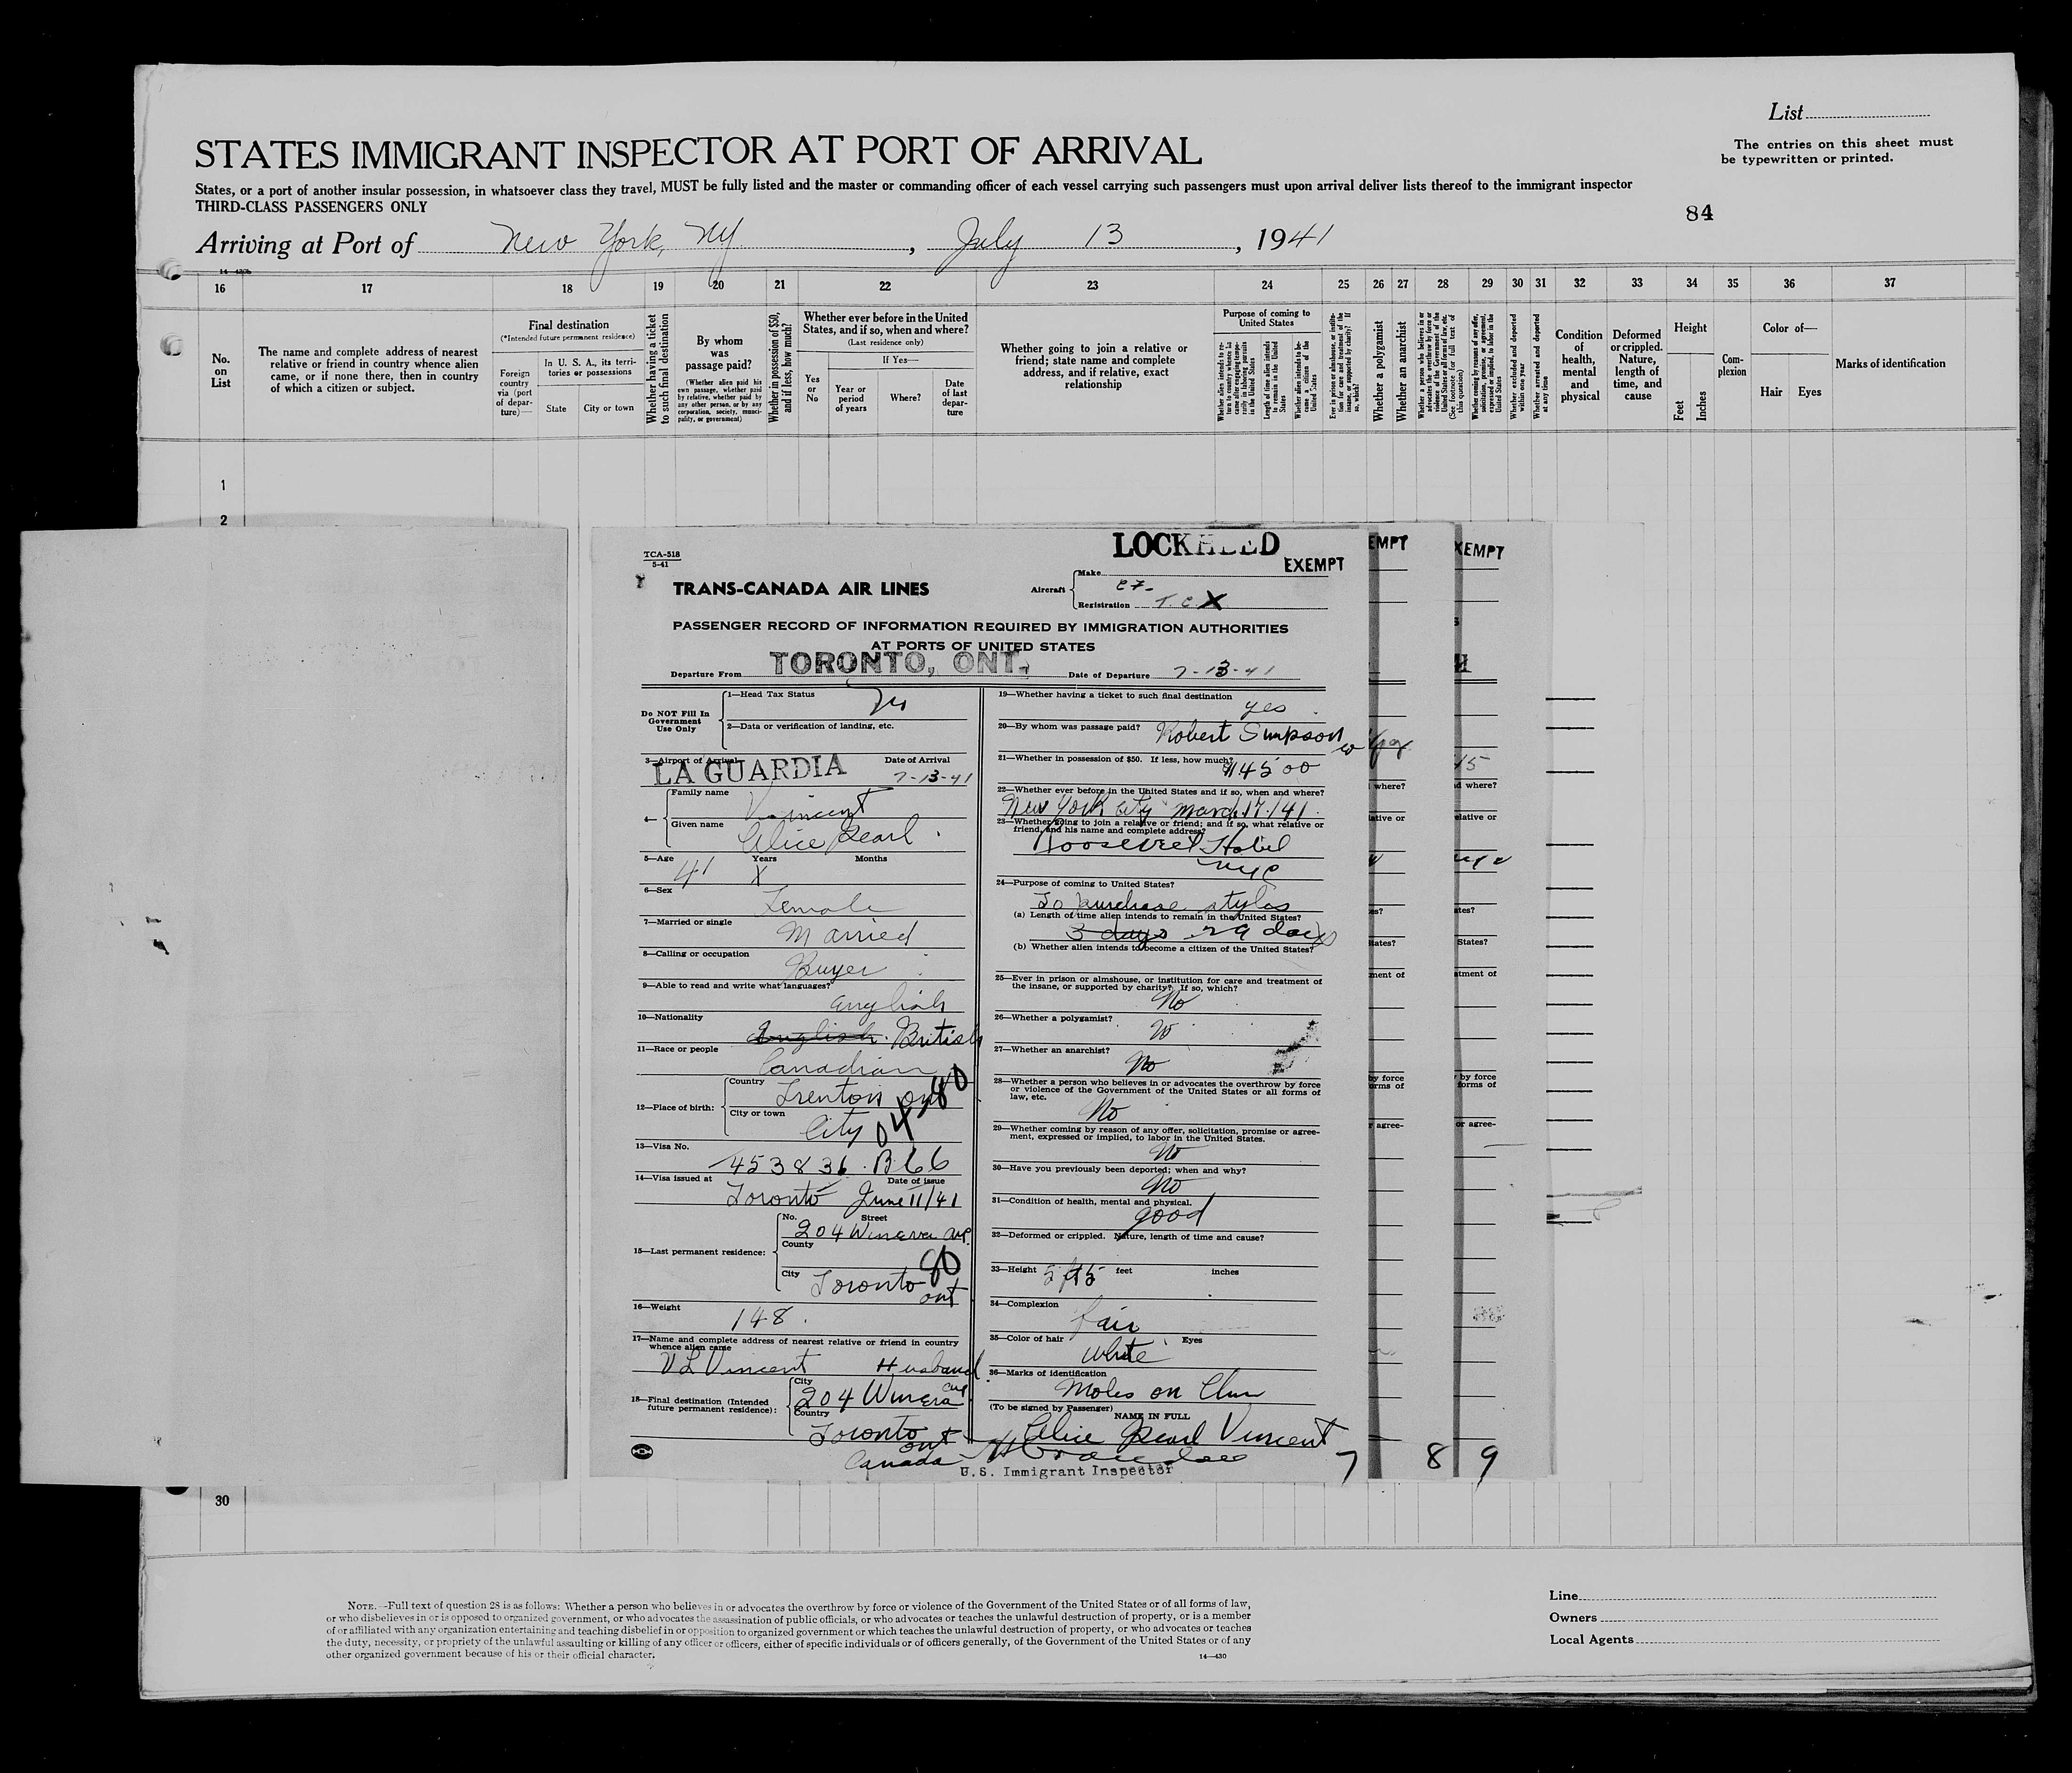 List
STATES IMMIGRANT INSPECTOR AT PORT OF ARRIVAL
The entries on this sheet must
be typewritten or printed.
States, or a port of another insular possession, in whatsoever class they travel, MUST be fully listed and the master or commanding officer of each vessel carrying such passengers must upon arrival deliver lists thereof to the immigrant inspector
THIRD-CLASS PASSENGERS ONLY
84
Arriving at Port of New York, NY, July 13, 1941
16 17 18 19 20 21 22 23 24 25 26 27 28 29 30 31 32 33 34 35 36 37
No. on List
The name and complete address of nearest
relative or friend in country whence alien
came, or if none there, then in country
of which a citizen or subject.
Final destination
(*Intended future permanent residence)
Foreign country via (port of departure)—
In U. S. A., its territories or possessions
State
City or town
Whether having a ticket to such final destination
By whom was passage paid?
(Whether alien paid his own passage, whether paid by relative, whether paid by any other person, or by any corporation, society, municipality, or government)
Whether in possession of $50, and if less, how much?
Whether ever before in the United
States, and if so, when and where?
(Last residence only)
Yes or No
If Yes—
Year or period of years
Where?
Date of last departure
Whether going to join a relative or
friend; state name and complete
address, and if relative, exact
relationship
Purpose of coming to
United States
Whether a polygamist
Whether an anarchist
Whether arrested and deported at any time
Condition of health, mental and physical
Deformed or crippled. Nature, length of time, and cause
Height
Feet
Inches
Complexion
Color of—
Hair
Eyes
Marks of identification
1
2
30
TCA-518
5-41
LOCKHEED
EXEMPT
TRANS-CANADA AIR LINES
Aircraft
Make
CF-
Registration T.C X
PASSENGER RECORD OF INFORMATION REQUIRED BY IMMIGRATION AUTHORITIES
AT PORTS OF UNITED STATES
Departure From TORONTO, ONT. Date of Departure 7-13-41
Do NOT Fill In
Government
Use Only
1—Head Tax Status
2—Data or verification of landing, etc.
3—Airport of Arrival Date of Arrival
LA GUARDIA 7-13-41
4— Family name Vincent
Given name Alice Pearl
5—Age Years Months
41 X
6—Sex
Female
7—Married or single
Married
8—Calling or occupation
Buyer
9—Able to read and write what languages?
English
10—Nationality
English British
11—Race or people
Canadian
12—Place of birth:
Country
Trenton Ont
City or town
City
04 80
13—Visa No.
453836 B66
14—Visa issued at Date of issue
Toronto June 11/41
15—Last permanent residence:
No. Street
204 Wineva Ave
County
80
City
Toronto Ont
16—Weight
148
17—Name and complete address of nearest relative or friend in country
whence alien came
V L Vincent Husband
18—Final destination (Intended
future permanent residence):
City
204 Wineva Ave
Country
Toronto Ont
Canada
19—Whether having a ticket to such final destination
yes
20—By whom was passage paid?
Robert Simpson Co
21—Whether in possession of $50. If less, how much?
$145 00
22—Whether ever before in the United States and if so, when and where?
New York City March 17/41
23—Whether going to join a relative or friend; and if so, what relative or
friend, and his name and complete address?
Roosevelt Hotel
NYC
24—Purpose of coming to United States?
To purchase styles
(a) Length of time alien intends to remain in the United States?
3 days 29 days
(b) Whether alien intends to become a citizen of the United States?
25—Ever in prison or almshouse, or institution for care and treatment of
the insane, or supported by charity? If so, which?
No
26—Whether a polygamist?
No
27—Whether an anarchist?
No
28—Whether a person who believes in or advocates the overthrow by force
or violence of the Government of the United States or all forms of
law, etc.
No
29—Whether coming by reason of any offer, solicitation, promise or agree-
ment, expressed or implied, to labor in the United States.
No
30—Have you previously been deported; when and why?
No
31—Condition of health, mental and physical.
good
32—Deformed or crippled. Nature, length of time and cause?
33—Height 5 ft 5 feet inches
34—Complexion
fair
35—Color of hair Eyes
white
36—Marks of identification
Moles on Chin
(To be signed by Passenger)
NAME IN FULL
Alice Pearl Vincent
U.S. Immigrant Inspector
7 8 9
NOTE.—Full text of question 28 is as follows: Whether a person who believes in or advocates the overthrow by force or violence of the Government of the United States or of all forms of law,
or who disbelieves in or is opposed to organized government, or who advocates the assassination of public officials, or who advocates or teaches the unlawful destruction of property, or is a member
of or affiliated with any organization entertaining and teaching disbelief in or opposition to organized government or which teaches the unlawful destruction of property, or who advocates or teaches
the duty, necessity, or propriety of the unlawful assaulting or killing of any officer or officers, either of specific individuals or of officers generally, of the Government of the United States or of any
other organized government because of his or their official character.
14—430
Line
Owners
Local Agents